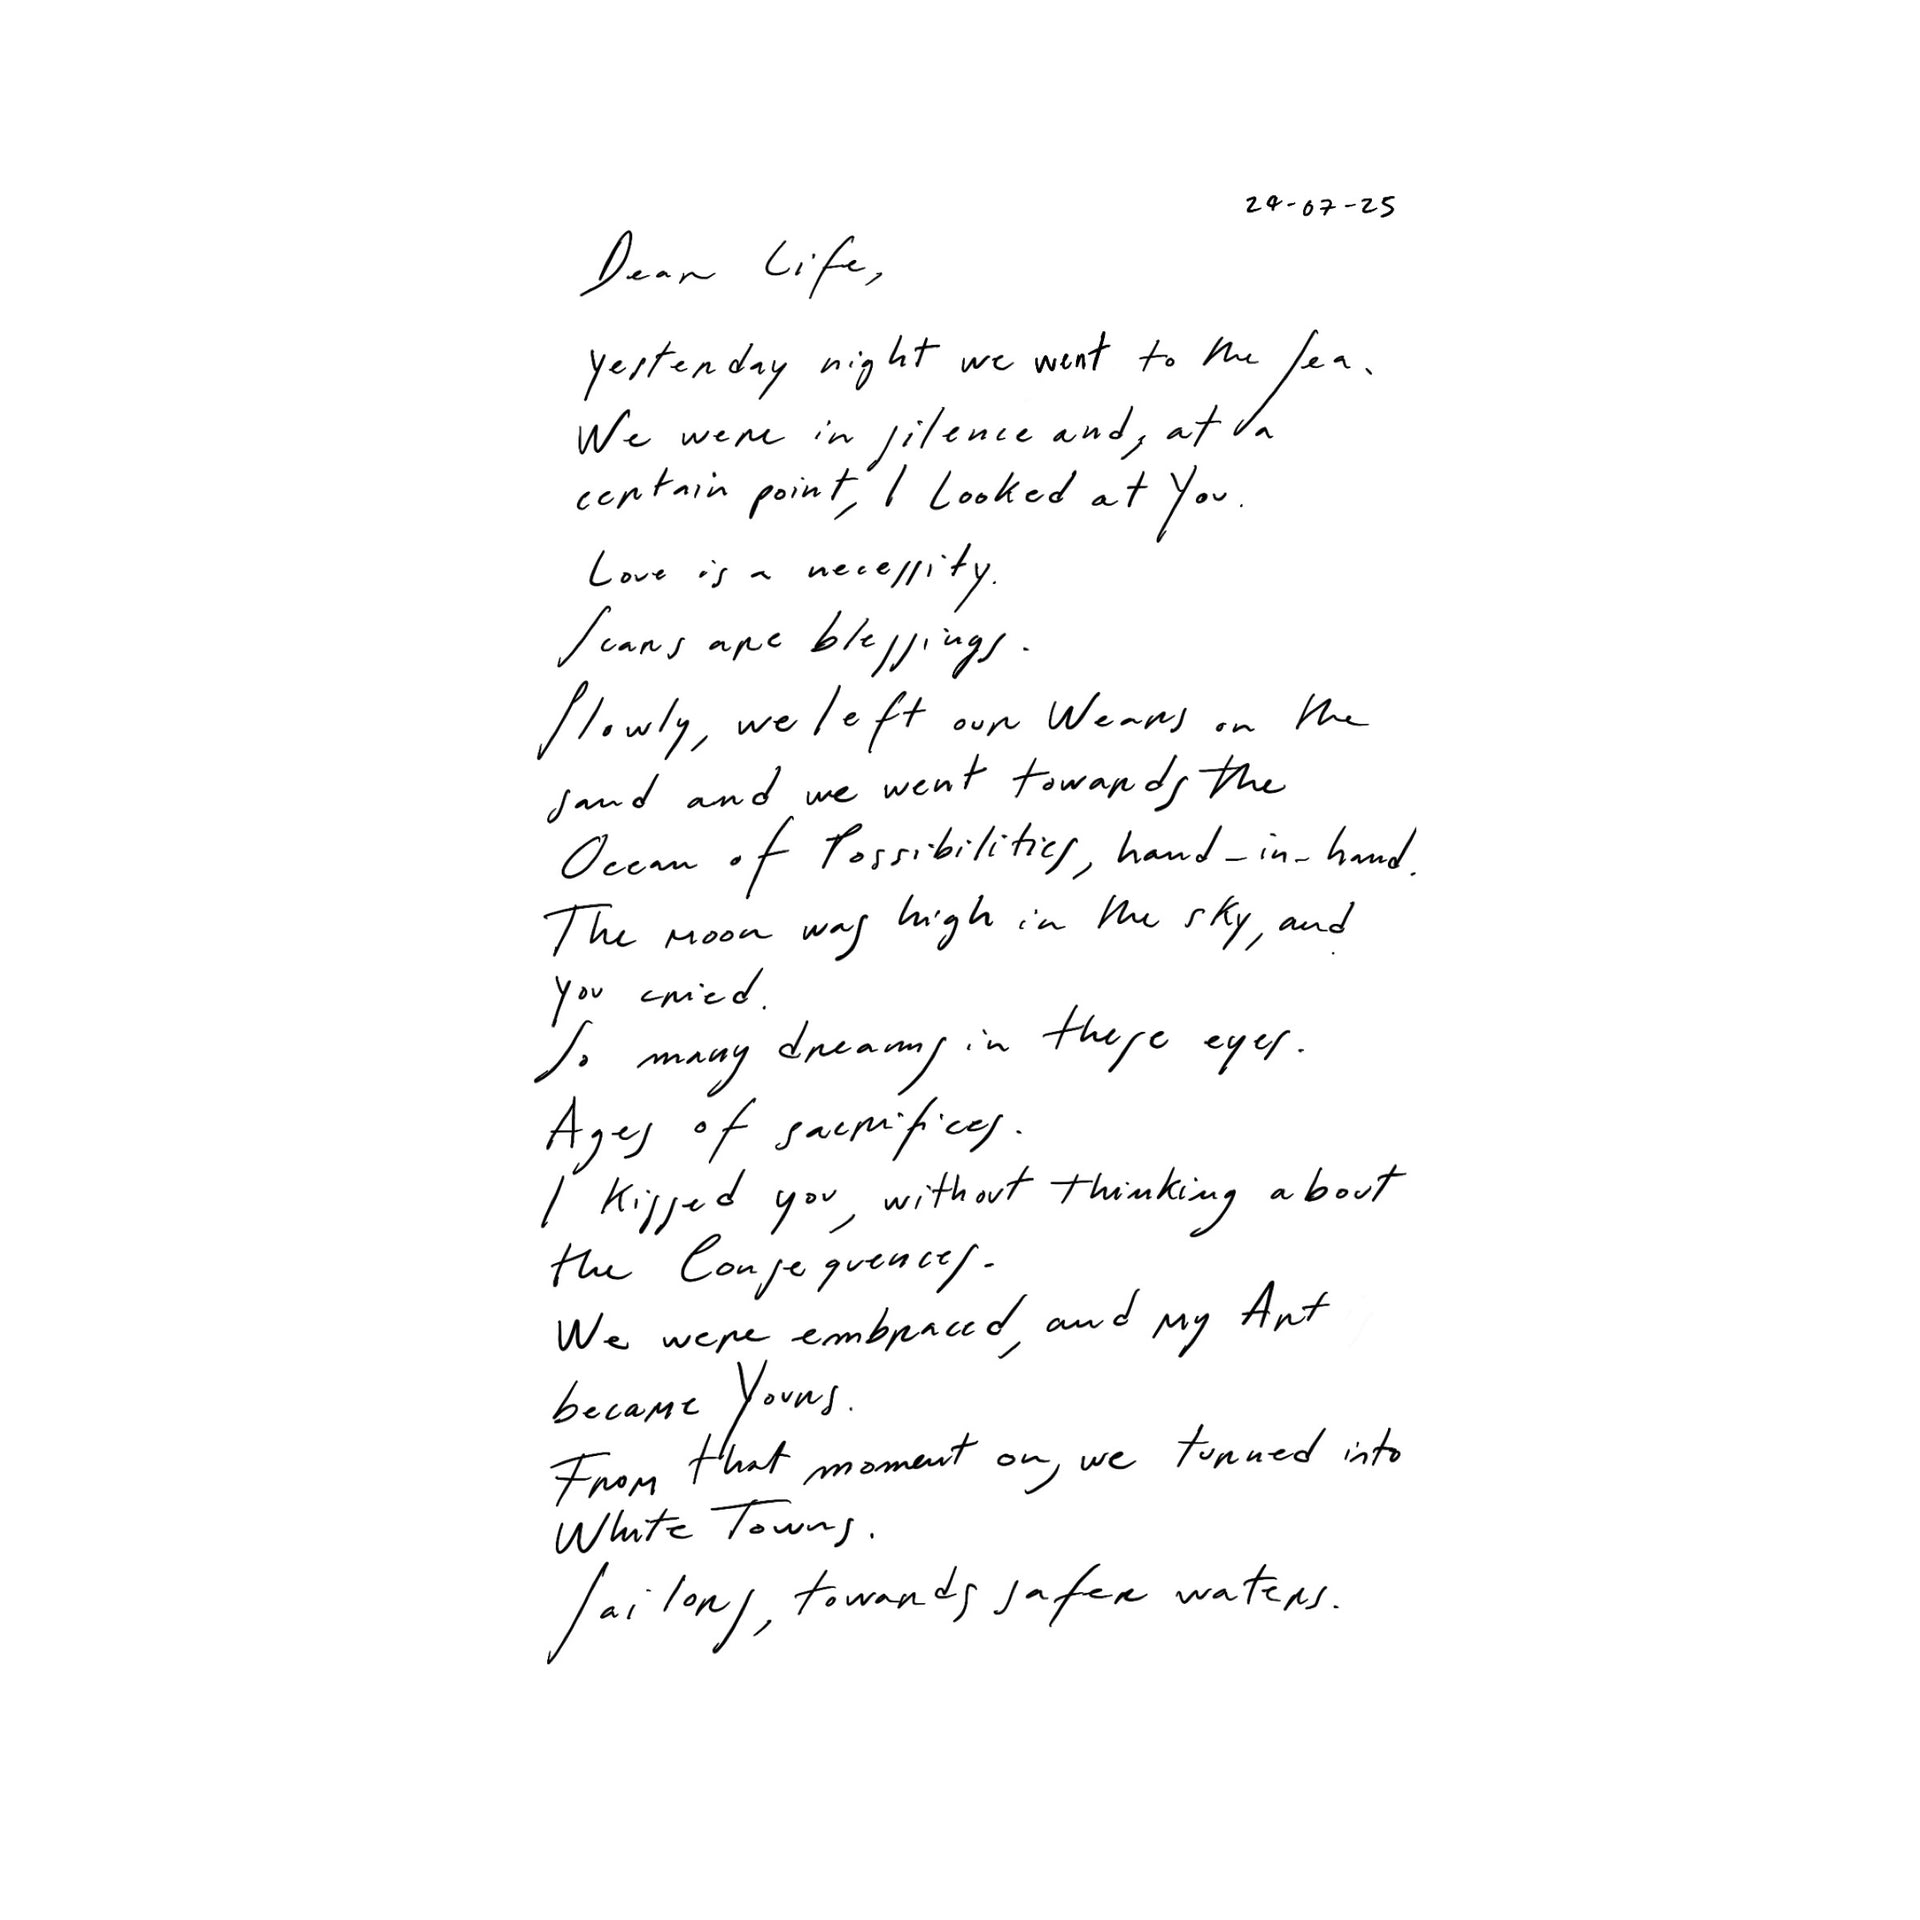 24-07-25
Dear Life,
yesterday night we went to the sea.
We were in silence and, at a
certain point, I looked at You.
Love is a necessity.
Scars are blessings.
Slowly, we left our Wears on the
sand and we went towards the
Ocean of Possibilities, hand-in-hand.
The moon was high in the sky, and
you cried.
So many dreams in these eyes.
Ages of sacrifices.
I kissed you, without thinking about
the Consequences.
We were embraced, and my Art
became Yours.
From that moment on, we turned into
White Towns.
Sailors, towards safer waters.